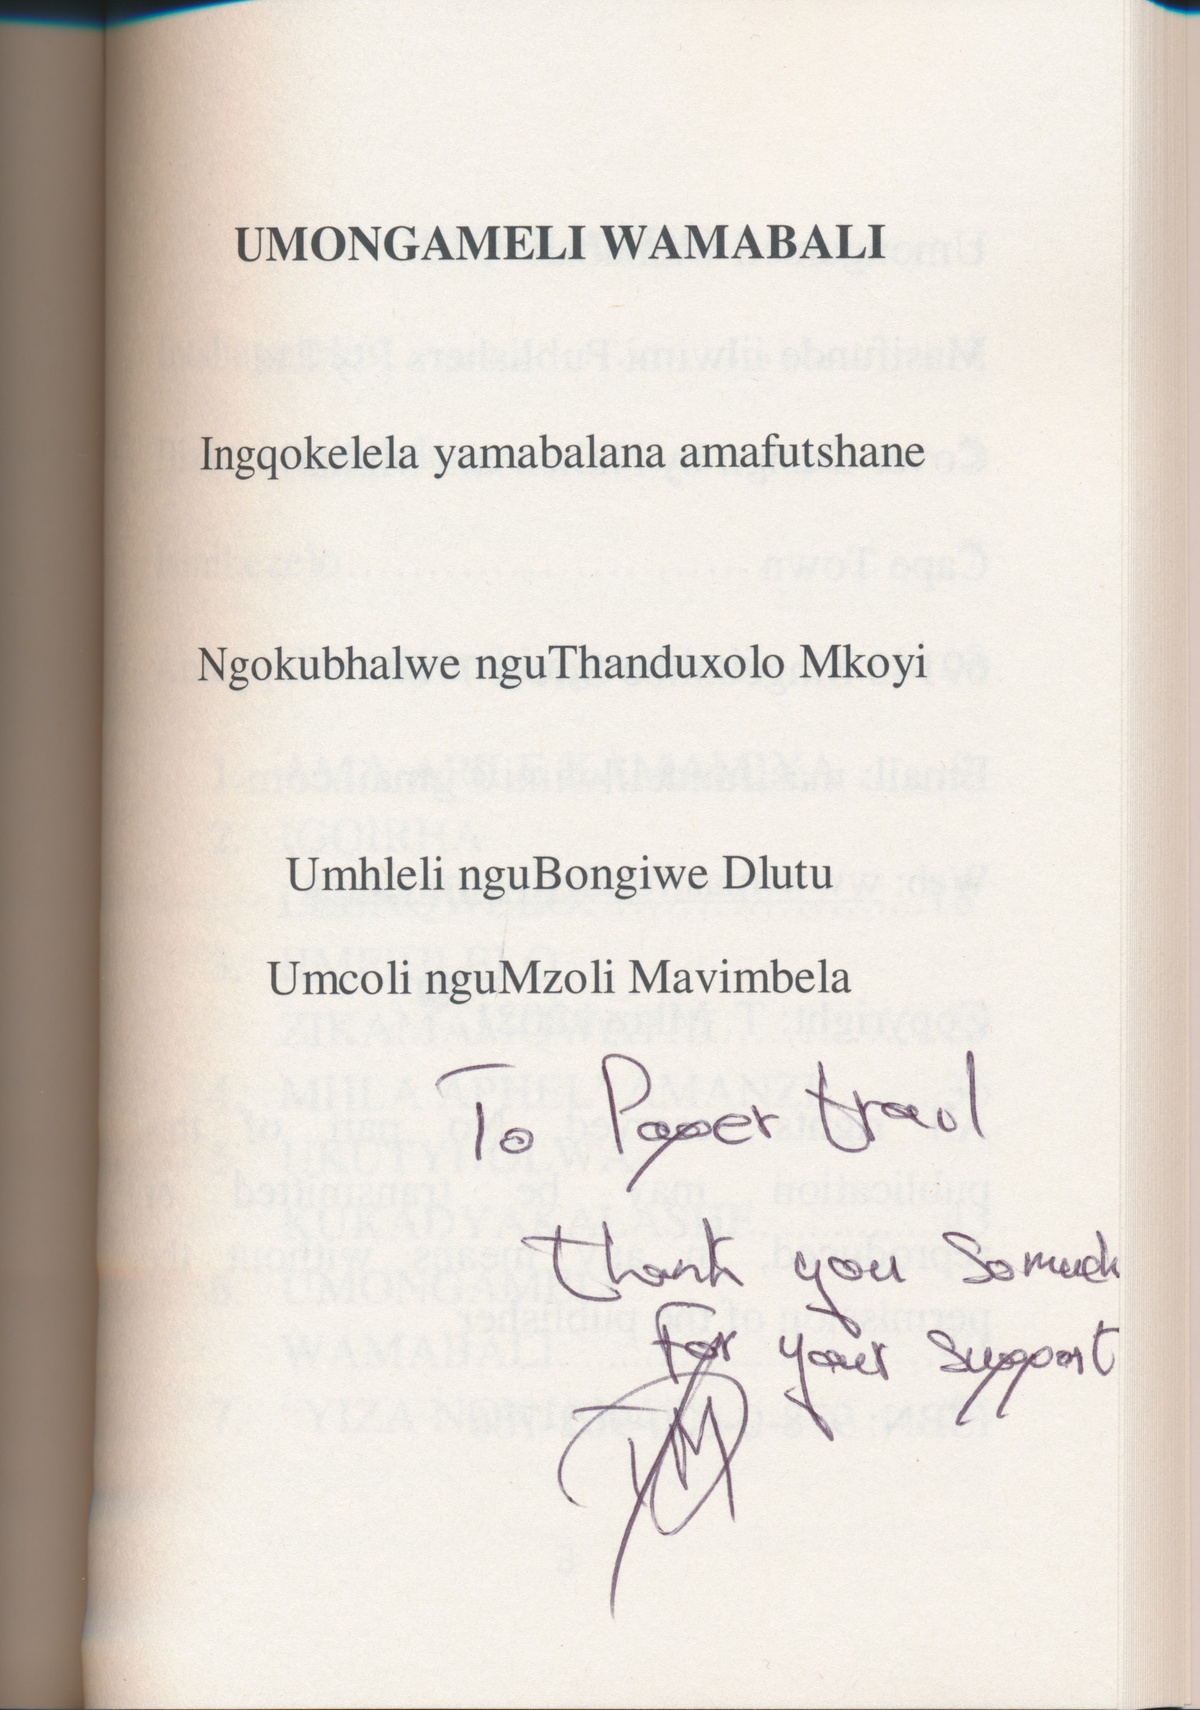 UMONGAMELI WAMABALI
Ingqokelela yamabalana amafutshane
Ngokubhalwe nguThanduxolo Mkoyi
Umhleli nguBongiwe Dlutu
Umcoli nguMzoli Mavimbela
To Paper trail
thank you so much
for your support